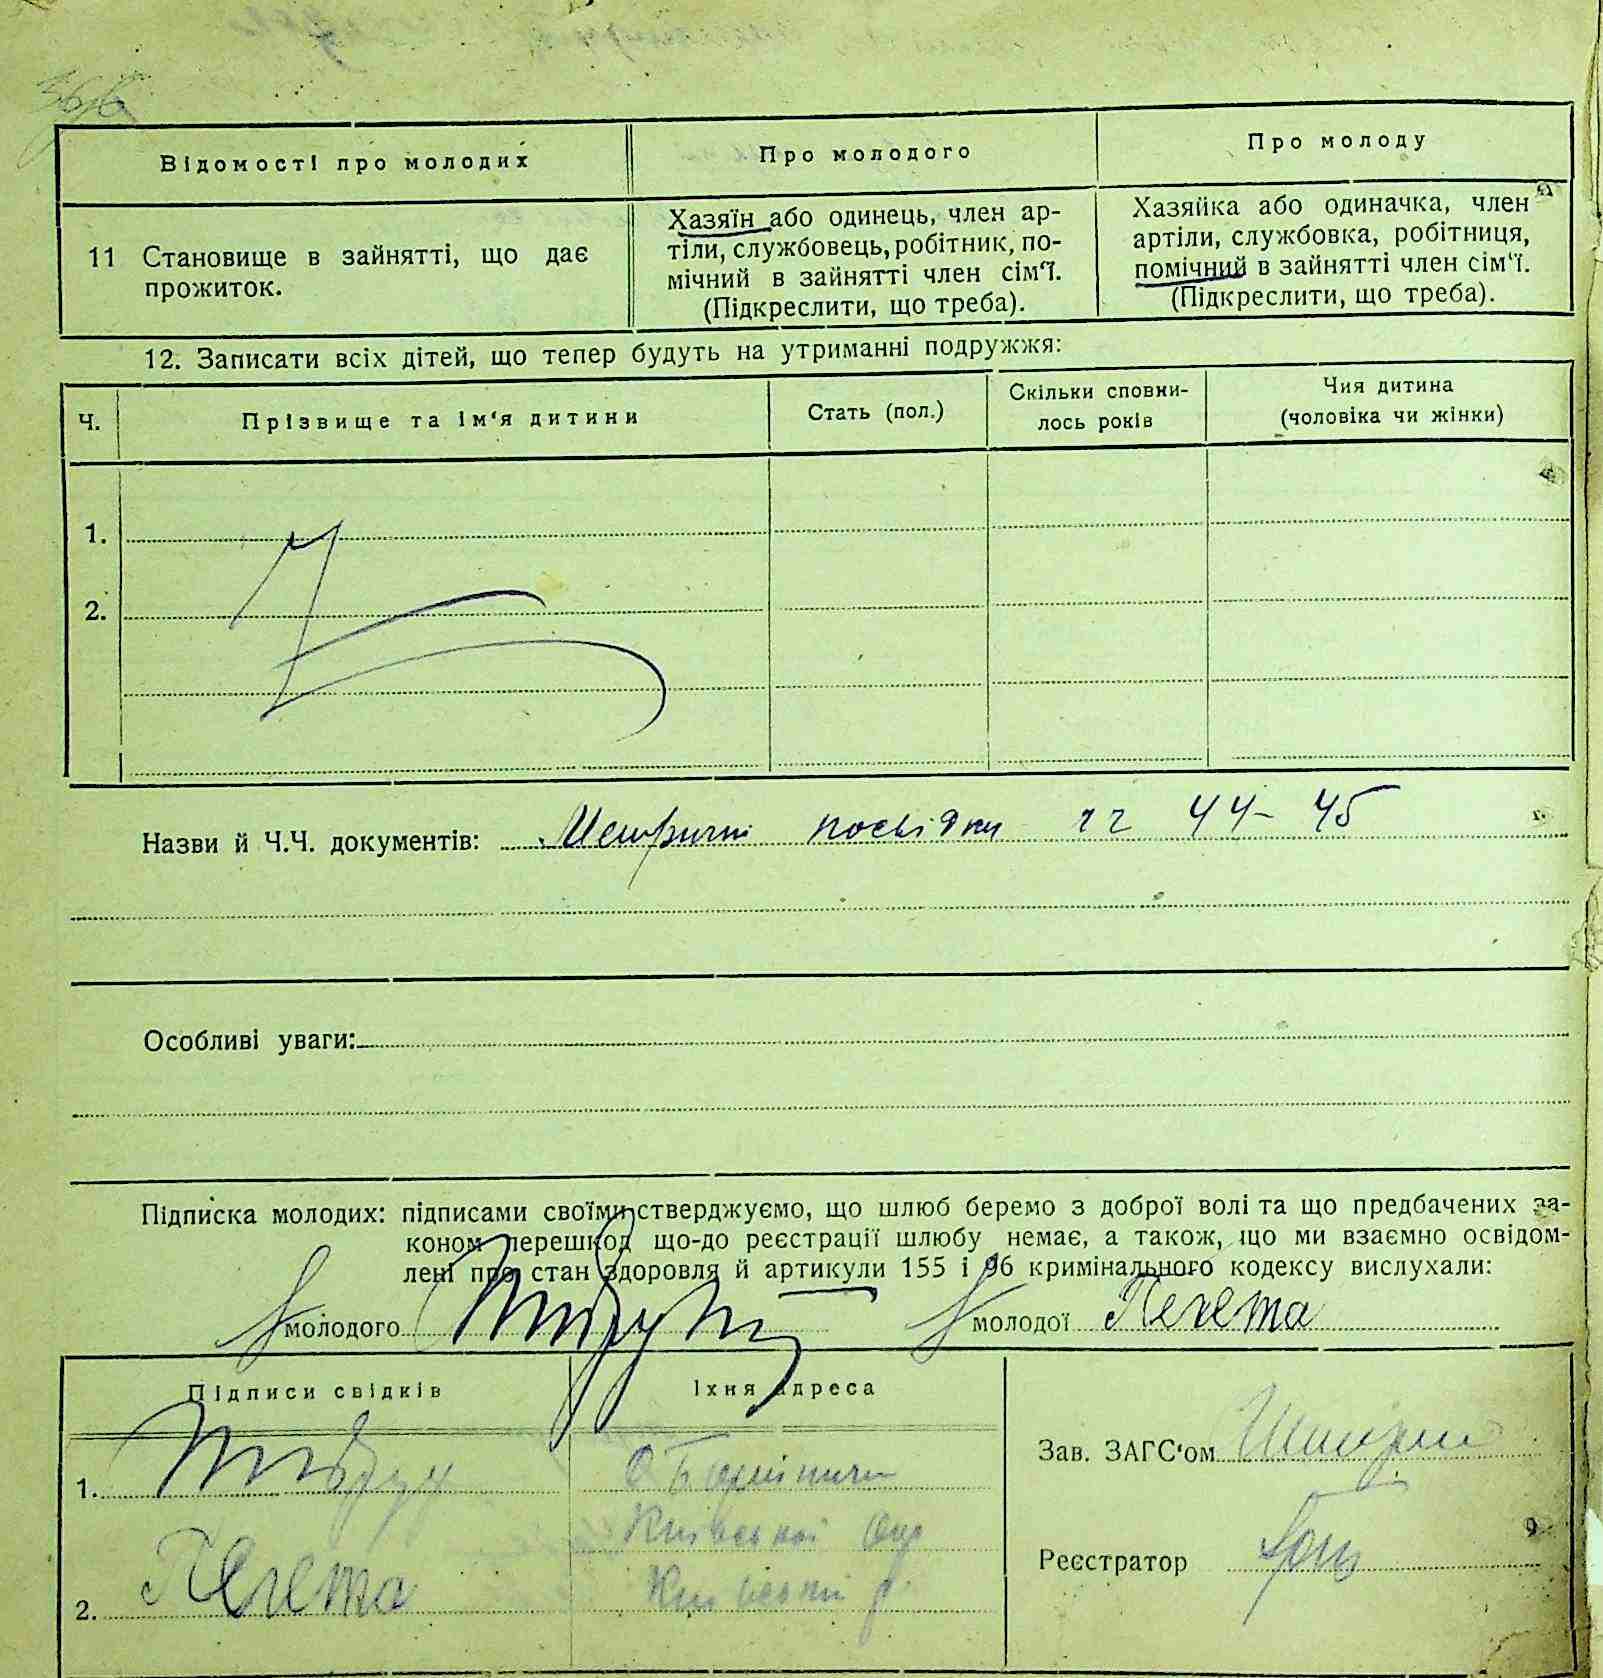 Відомості про молодих
Про молодого
Про молоду
11 Становище в зайнятті, що дає
прожиток.
Хазяїн або одинець, член ар-
тіли, службовець, робітник, по-
мічний в зайнятті член сім'ї.
(Підкреслити, що треба).
Хазяйка або одиначка, член
артіли, службовка, робітниця,
помічний в зайнятті член сім'ї.
(Підкреслити, що треба).
12. Записати всіх дітей, що тепер будуть на утриманні подружжя:
Ч.
Прізвище та ім'я дитини
Стать (пол.)
Скільки сповни-
лось років
Чия дитина
(чоловіка чи жінки)
1.
2.
Назви й Ч.Ч. документів: Метричні посвідки чч 44-45
Особливі уваги:
Підписка молодих: підписами своїми стверджуємо, що шлюб беремо з доброї волі та що предбачених за-
коном перешкод що-до реєстрації шлюбу немає, а також, що ми взаємно освідом-
лені про стан здоровля й артикули 155 і 96 кримінального кодексу вислухали:
молодого
молодої
Підписи свідків
Їхня адреса
1.
Київської Окр
2.
Зав. ЗАГС'ом
Реєстратор